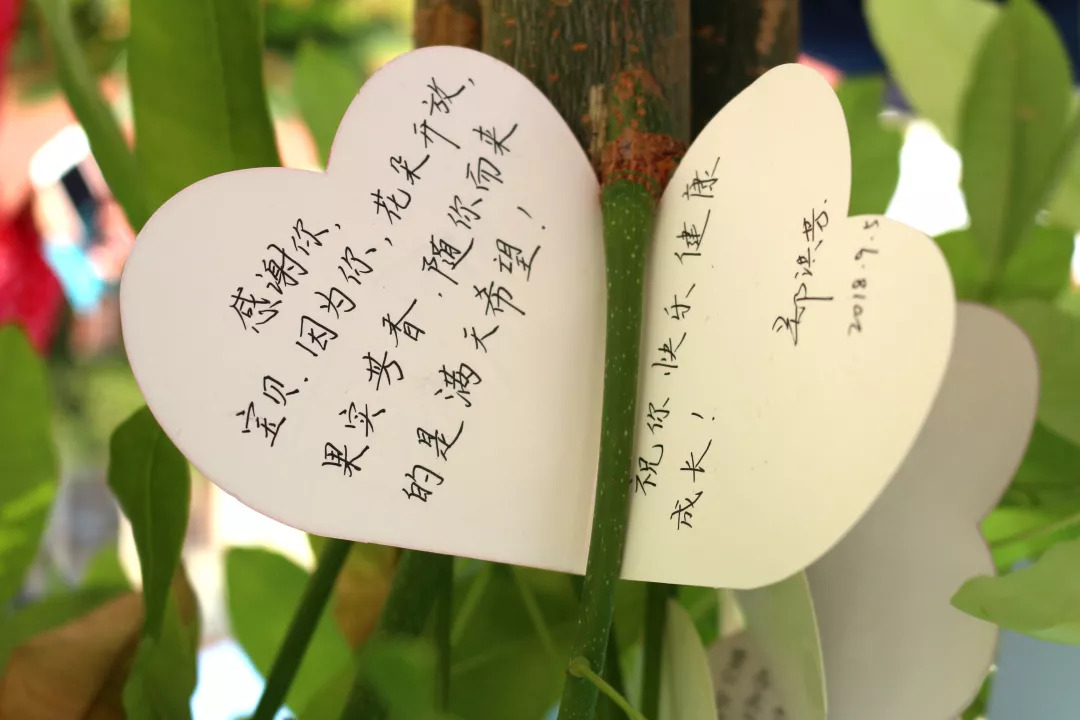 感谢你,
宝贝.因为你,花朵开放,
果实芳香.随你而来
的是满天希望!
祝你快乐、健康
成长!
郑洪
2018.9.5